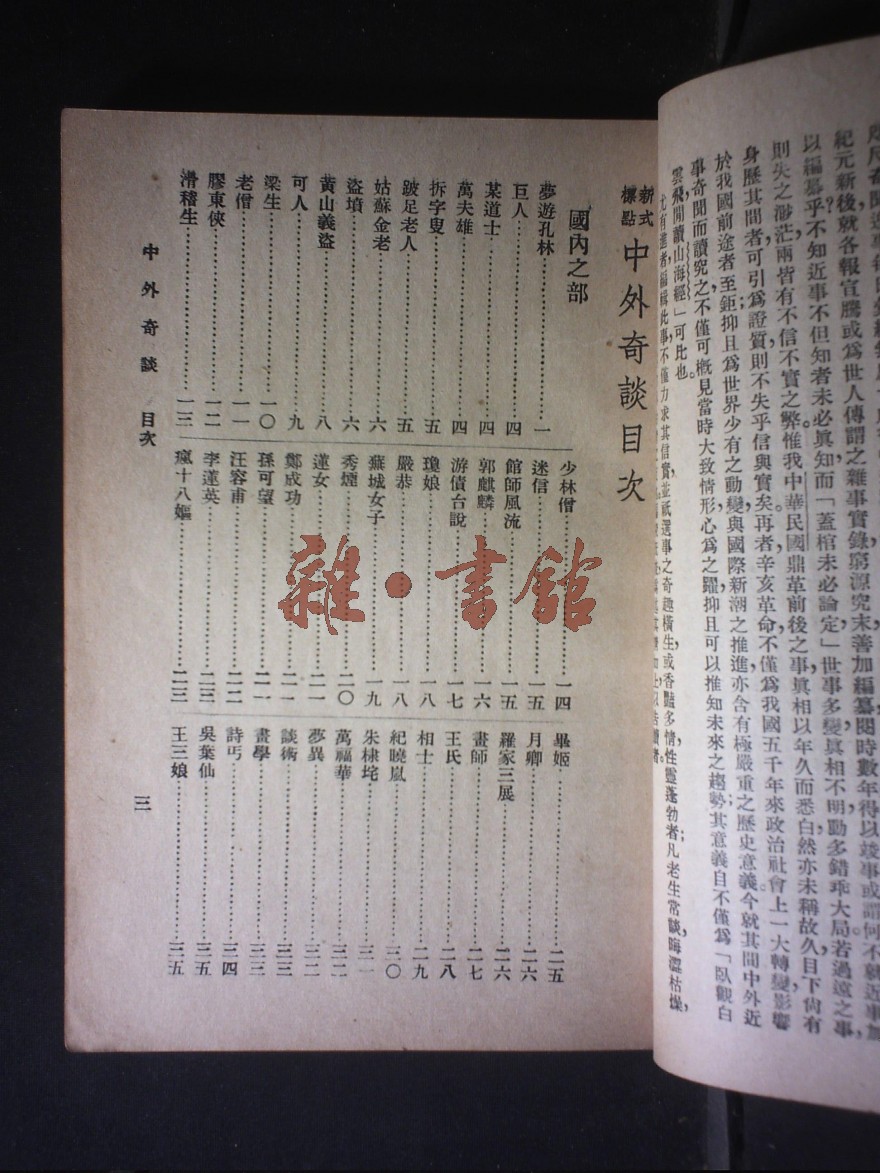 紀元新後就各報官牘或爲世人傳謂之雜事實錄窮源究末善加編纂閱時數年得以竣事或謂何不就近事加
以編纂乎?不知近事不但知者未必眞知而「蓋棺未必論定」世事多變眞相不明動多錯乖大局若過遠之事
則失之渺茫兩皆有不信不實之弊惟我中華民國鼎革前後之事眞相以年久而悉白然亦未稱故久目下尙有
身歷其間者可引爲證質則不失乎信與實矣。再者辛亥革命不僅爲我國五千年來政治社會上一大轉變影響
於我國前途者至鉅抑且爲世界少有之動變與國際新潮之推進亦含有極嚴重之歷史意義今就其間中外近
事奇聞而讀究之不僅可概見當時大致情形心爲之躍抑且可以推知未來之趨勢其意義自不僅爲「臥觀白
雲飛閒讀山海經」可比也。
尤有進者編輯此事不僅力求其信實並祇選事之奇趣橫生或香豔多情性靈蓬勃者凡老生常談晦澀枯燥,
新式標點 中外奇談目次
國內之部
夢遊孔林 一
巨人 四
某道士 四
萬夫雄 四
拆字叟 五
跛足老人 五
姑蘇金老 六
盜墳 六
黃山義盜 八
可人 九
梁生 一〇
老僧 一一
膠東俠 一二
滑稽生 一三
少林僧 一四
迷信 一五
館師風流 一五
郭麒麟 一六
游債台說 一七
瓊娘 一八
嚴恭 一八
蕪城女子 一九
秀煙 二〇
蓮女 二一
鄭成功 二一
孫可望 二一
汪容甫 二二
李蓮英 二三
瘋十八嫗 二三
畢姬 二五
月卿 二六
羅家三展 二六
畫師 二七
王氏 二八
相士 二九
紀曉嵐 三〇
朱棣垞 三一
萬福華 三二
夢異 三二
談術 三三
畫學 三三
詩丐 三四
吳葉仙 三五
王三娘 三五
中外奇談 目次
三
雜·書館